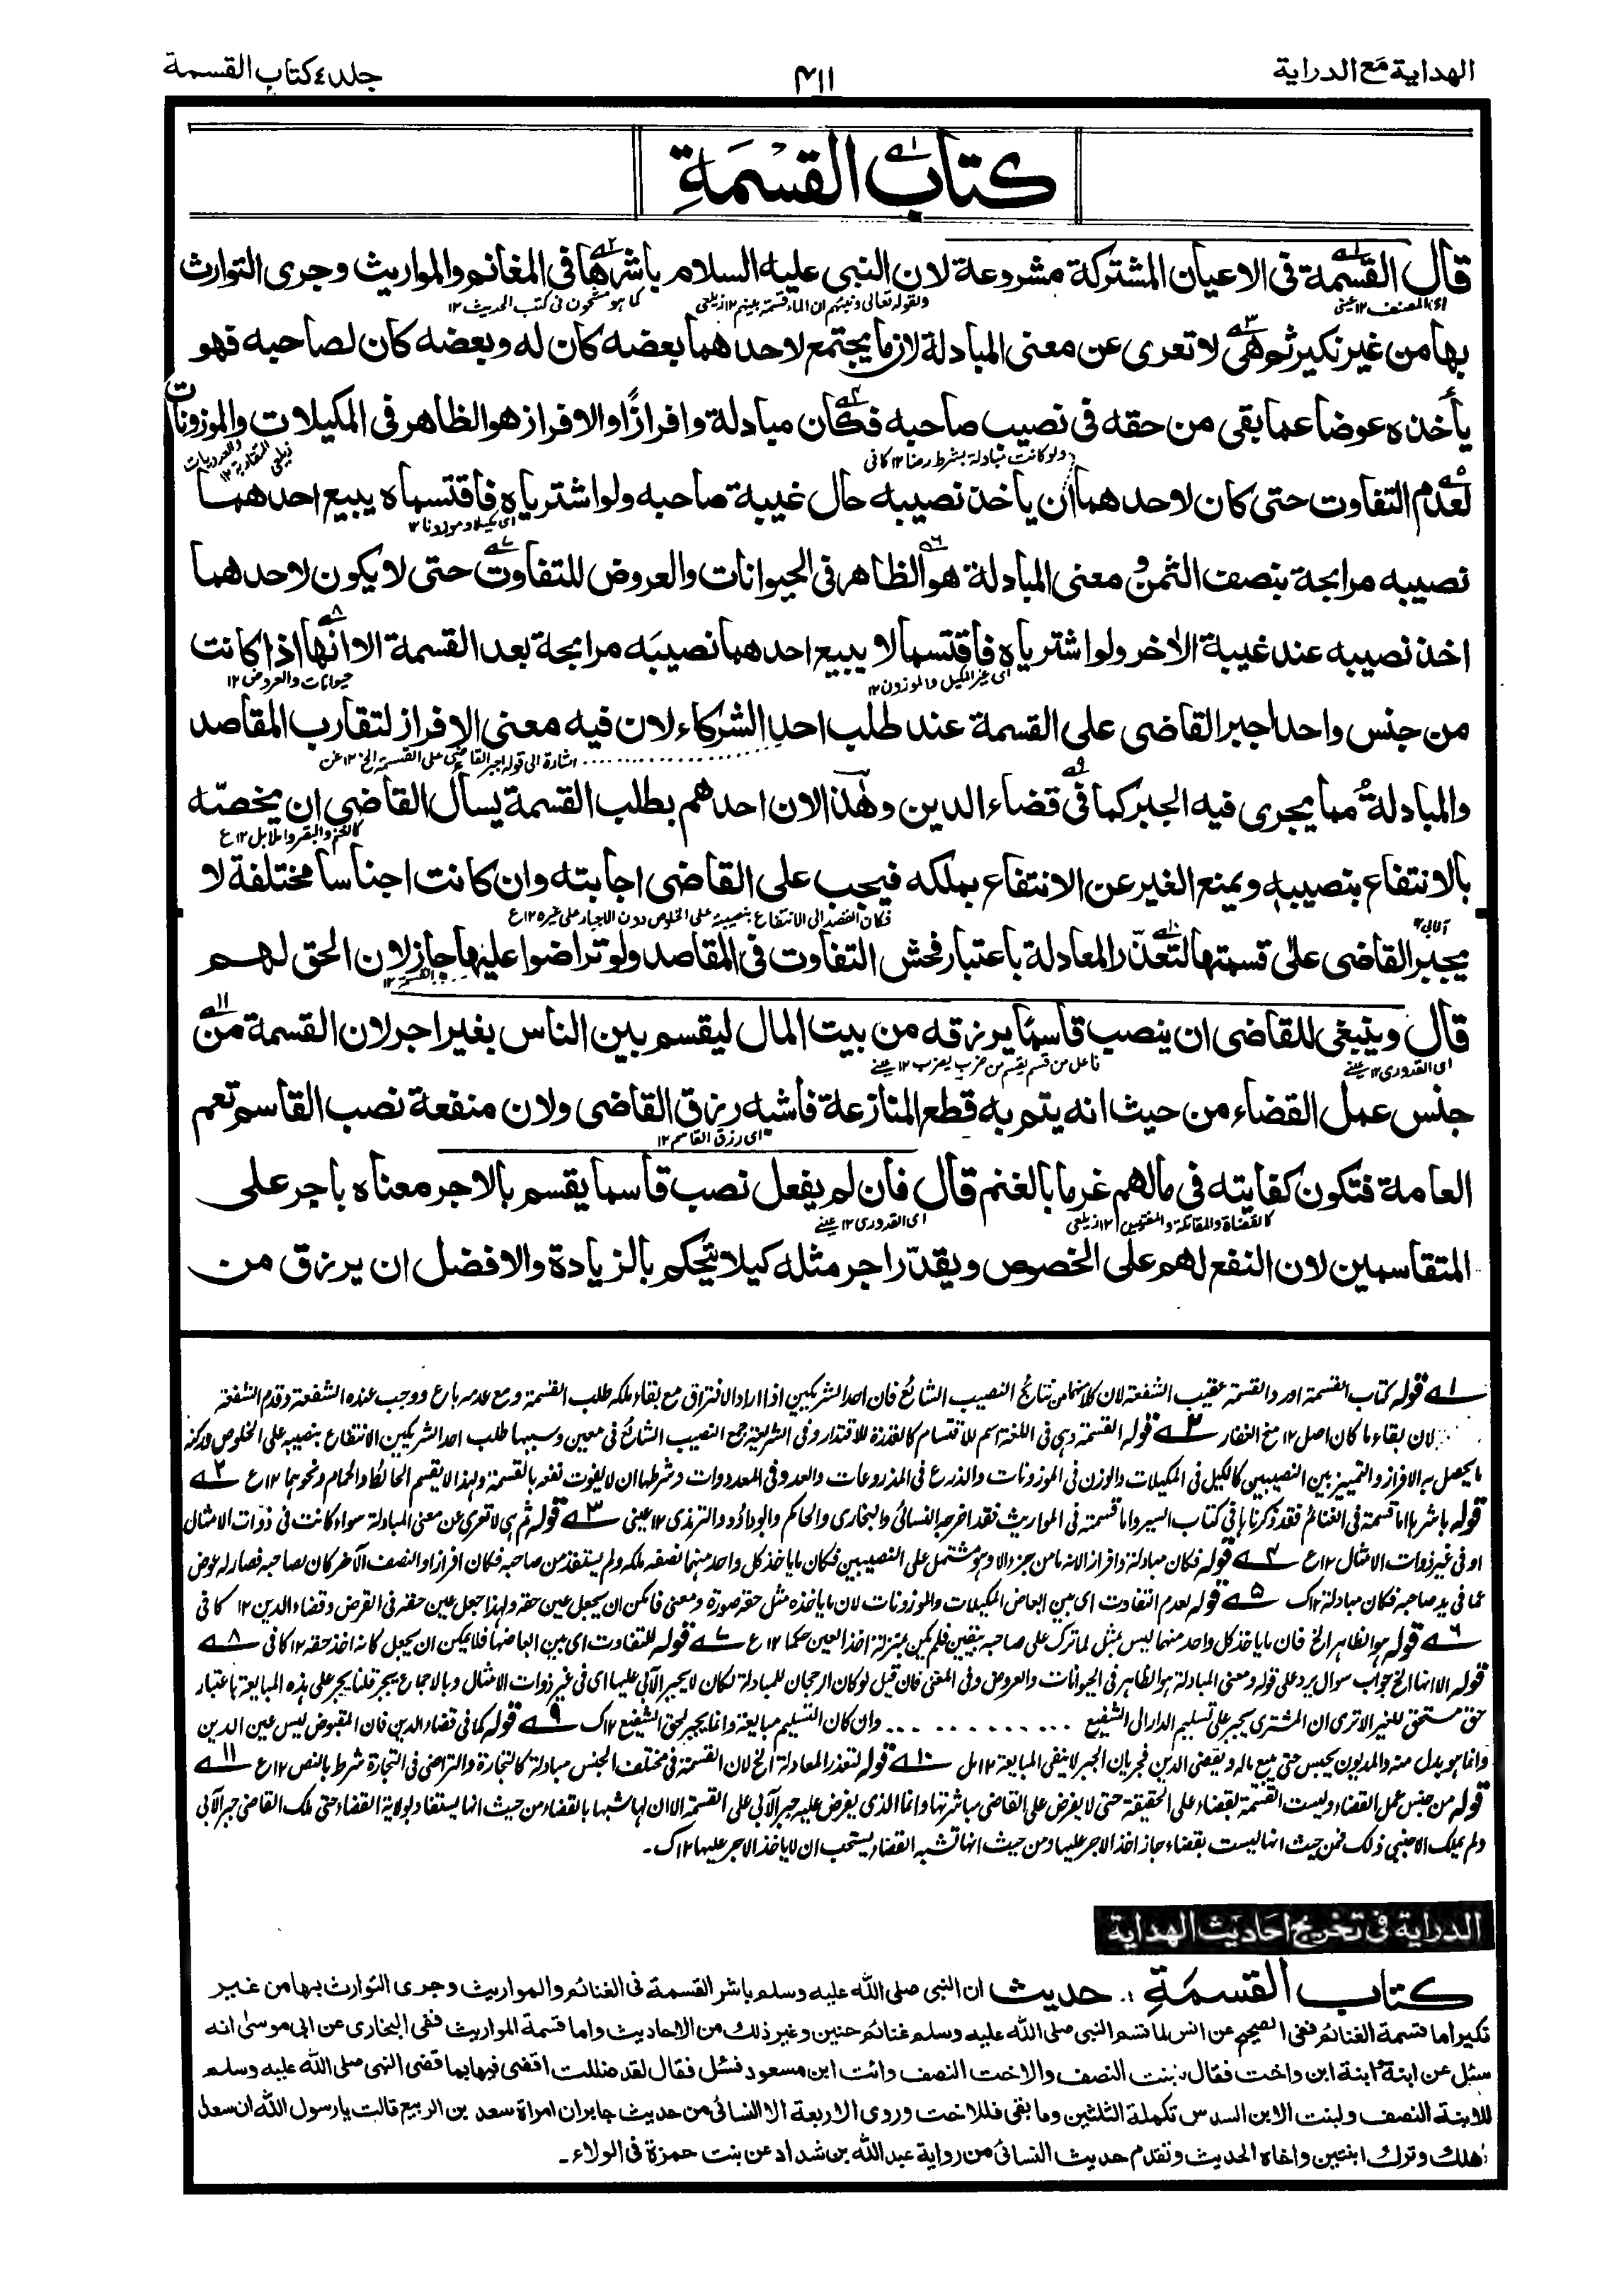 الهداية مع الدراية
٤١١
جلد ٤ كتاب القسمة
كتاب القسمة
قال القسمة فى الاعيان المشتركة مشروعة لان النبى عليه السلام باشرها فى المغانم والمواريث وجرى التوارث
اى المصنف ١٢ عينى
ولقوله تعالى ونبئهم ان الماء قسمة بينهم ١٢ زيلعى
كما هو مشحون فى كتب الحديث ١٢
بها من غير نكير ثم هى لا تعرى عن معنى المبادلة لان ما يجتمع لاحدهما بعضه كان له وبعضه كان لصاحبه فهو
يأخذه عوضا عما بقى من حقه فى نصيب صاحبه فكان مبادلة وافرازًا والافراز هو الظاهر فى المكيلات والموزونات
ولو كانت مبادلة بشرط رضا ١٢ كافى
لعدم التفاوت حتى كان لاحدهما ان ياخذ نصيبه حال غيبة صاحبه ولو اشترياه فاقتسماه يبيع احدهما
اى مكيلا وموزونا ١٢
نصيبه مرابحة بنصف الثمن و معنى المبادلة هو الظاهر فى الحيوانات والعروض للتفاوت حتى لا يكون لاحدهما
اخذ نصيبه عند غيبة الاخر ولو اشترياه فاقتسما لا يبيع احدهما نصيبَه مرابحة بعد القسمة الا انها اذا كانت
اى غير المكيل والموزون ١٢
حيوانات والعروض ١٢
من جنس واحد اجبر القاضى على القسمة عند طلب احد الشركاء لان فيه معنى الافراز لتقارب المقاصد
اشارة الى قوله اجبر القاضى على القسمة الخ ١٢ عن
والمبادلة مما يجرى فيه الجبر كما فى قضاء الدين وهذا لان احدهم بطلب القسمة يسأل القاضى ان يخصّه
كالغنم والبقر والابل ١٢ ع
بالانتفاع بنصيبه ويمنع الغير عن الانتفاع بملكه فيجب على القاضى اجابته وان كانت اجناسا مختلفة لا
فكان القصد الى الانتفاع بنصيبه على الخلوص دون الاجبار على غيره ١٢ ع
يجبر القاضى على قسمتها لتعذر المعادلة باعتبار فحش التفاوت فى المقاصد ولو تراضوا عليها جاز لان الحق لهم
قال وينبغى للقاضى ان ينصب قاسمًا يرزقه من بيت المال ليقسم بين الناس بغير اجر لان القسمة من
اى القدورى ١٢ عينى
فاعل من قسم يقسم من ضرب يضرب ١٢ عينى
جنس عمل القضاء من حيث انه يتم به قطع المنازعة فاشبه رزق القاضى ولان منفعة نصب القاسم تعم
اى رزق القاسم ١٢
العامة فتكون كفايته فى مالهم غرما بالغنم قال فان لم يفعل نصب قاسما يقسم بالاجر معناه باجر على
كالقضاة والمقاتلة والمفتيين ١٢ زيلعى
اى القدورى ١٢ عينى
المتقاسمين لان النفع لهم على الخصوص ويقدّر اجر مثله كيلا يتحكم بالزيادة والافضل ان يرزق من
١ قوله كتاب القسمة اورد القسمة عقيب الشفعة لان كلا منهما من نتائج النصيب الشائع فان احد الشريكين اذا اراد الافتراق مع بقاء ملكه طلب القسمة ومع عدمه باع ووجب عنده الشفعة وقدم الشفعة
لان بقاء ما كان اصل ١٢ منح الغفار ٢ قوله القسمة وهى فى اللغة اسم للاقتسام كالقدرة للاقتدار وفى الشريعة جمع النصيب الشائع فى معين وسببها طلب احد الشريكين الانتفاع بنصيبه على الخلوص وركنه
ما يحصل به الافراز والتمييز بين النصيبين كالكيل فى المكيلات والوزن فى الموزونات والذرع فى المذروعات والعدد فى المعدودات وشرطها ان لا يفوت نفعه بالقسمة ولهذا لا يقسم الحائط والحمام ونحوهما ١٢ ع ٢
قوله باشرها اما قسمة فى الغنائم فقد ذكرناها فى كتاب السير واما قسمته فى المواريث فقد اخرجه النسائى والبخارى والحاكم وابوداؤد والترمذى ١٢ عينى ٣ قوله ثم هى لا تعرى عن معنى المبادلة سواء كانت فى ذوات الامثال
او فى غير ذوات الامثال ١٢ ع ٤ قوله فكان مبادلة وافرازا لانه ما من جزء الا وهو مشتمل على النصيبين فكان ما ياخذ كل واحد منهما نصفه ملكه ولم يستفد من صاحبه فكان افرازا والنصف الآخر كان لصاحبه فصار له عوض
عما فى يد صاحبه فكان مبادلة ١٢ ك ٥ قوله لعدم التفاوت اى بين ابعاض المكيلات والموزونات لان ما ياخذه مثل حقه صورة ومعنى فامكن ان يجعل عين حقه ولهذا جعل عين حقه فى القرض وقضاء الدين ١٢ كافى
٦ قوله هو الظاهر الخ فان ما ياخذ كل واحد منهما ليس بمثل لما ترك على صاحبه بيقين فلم يكن بمنزلة اخذ العين حكما ١٢ ع ٧ قوله للتفاوت اى بين ابعاضها فلا يمكن ان يجعل كانه اخذ حقه ١٢ كافى ٨
قوله الا انها الخ جواب سوال يرد على قوله ومعنى المبادلة هو الظاهر فى الحيوانات والعروض وفى المغنى فان قيل لو كان الرجحان للمبادلة لكان لا يجبر الآبى عليها اى فى غير ذوات الامثال وبالاجماع يجبر قلنا يجبر على هذه المبايعة باعتبار
حق مستحق للغير الا ترى ان المشترى يجبر على تسليم الدار الى الشفيع ........... وان كان التسليم مبايعة وانما يجبر لحق الشفيع ١٢ ك ٩ قوله كما فى قضاء الدين فان المقبوض ليس عين الدين
وانما هو بدل منه والمديون يحبس حتى يبيع ماله ويقضى الدين فجريان الجبر لا ينفى المبايعة ١٢ مل ١٠ قوله لتعذر المعادلة الخ لان القسمة فى مختلف الجنس مبادلة كالتجارة والتراضى فى التجارة شرط بالنص ١٢ ع ١١
قوله من جنس عمل القضاء وليست القسمة بقضاء على الحقيقة حتى لا يفرض على القاضى مباشرتها وانما الذى يفرض عليه جبر الآبى على القسمة الا ان لها شبها بالقضاء من حيث انها يستفاد بولاية القضاء حتى ملك القاضى جبر الآبى
ولم يملك الاجنبى ذلك فمن حيث انها ليست بقضاء جاز اخذ الاجر عليها ومن حيث انها تشبه القضاء يستحب ان لا ياخذ الاجر عليها ١٢ ك۔
الدراية فى تخريج احاديث الهداية
كتاب القسمة :. حديث ان النبى صلى الله عليه وسلم باشر القسمة فى الغنائم والمواريث وجرى التوارث بها من غير
نكير اما قسمة الغنائم ففى الصحيح عن انس لما قسم النبى صلى الله عليه وسلم غنائم حنين وغير ذلك من الاحاديث واما قسمة المواريث ففى البخارى عن ابى موسى انه
سئل عن ابنة وابنة ابن واخت فقال بنت النصف والاخت النصف وائت ابن مسعود فسئل فقال لقد ضللت اقضى فيها بما قضى النبى صلى الله عليه وسلم
للابنة النصف ولبنت الابن السدس تكملة الثلثين وما بقى فللاخت وروى الاربعة الا النسائى من حديث جابر ان امراة سعد بن الربيع قالت يا رسول الله ان سعدا
هلك وترك ابنتين واخاه الحديث وتقدم حديث النسائى من رواية عبد الله بن شداد عن بنت حمزة فى الولاء۔